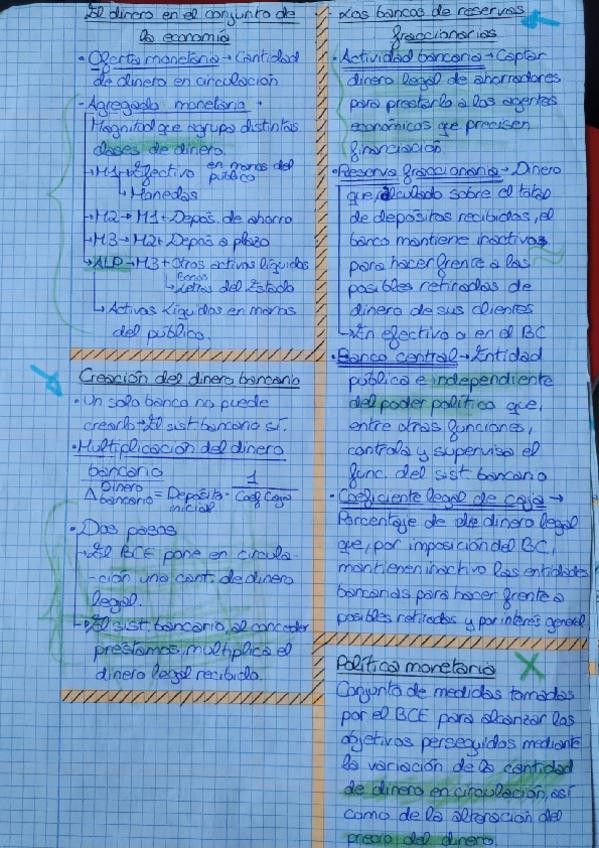 El dinero en el conjunto de
la economía
• Oferta monetaria → Cantidad
de dinero en circulación
- Agregado monetario →
Magnitud que agrupa distintas
clases de dinero
→ M1 → Efectivo en manos del
público
↳ Monedas
→ M2 → M1 + Depós. de ahorro
→ M3 → M2 + Depós a plazo
→ ALP → M3 + Otros activos líquidos
↳ Letras del Estado
↳ Activos líquidos en manos
del público.
Creación del dinero bancario
• Un solo banco no puede
crearlo → El sist bancario sí.
• Multiplicación del dinero
bancario
Δ Dinero bancario = Depósito inicial · 1 / Coef Caja
• Dos pasos
→ El BCE pone en circula-
-ción una cant. de dinero
legal.
↳ El sist. bancario, al conceder
préstamos, multiplica el
dinero legal recibido.
Los bancos de reservas
fraccionarios
• Actividad bancaria → Captar
dinero legal de ahorradores
para prestarlo a los agentes
económicos que precisen
financiación
• Reserva fraccionaria → Dinero
que, calculado sobre el total
de depósitos recibidos, el
banco mantiene inactivos
para hacer frente a las
posibles retiradas de
dinero de sus clientes
↳ En efectivo o en el BC
• Banco central → Entidad
pública e independiente
del poder político que,
entre otras funciones,
controla y supervisa el
func. del sist bancario
• Coeficiente legal de caja →
Porcentaje de dinero legal
que, por imposición del BC,
mantienen inactivo las entidades
bancarias para hacer frente a
posibles retiradas y por interés general
Política monetaria
Conjunto de medidas tomadas
por el BCE para alcanzar los
objetivos perseguidos mediante
la variación de la cantidad
de dinero en circulación, así
como de la alteración del
precio del dinero.